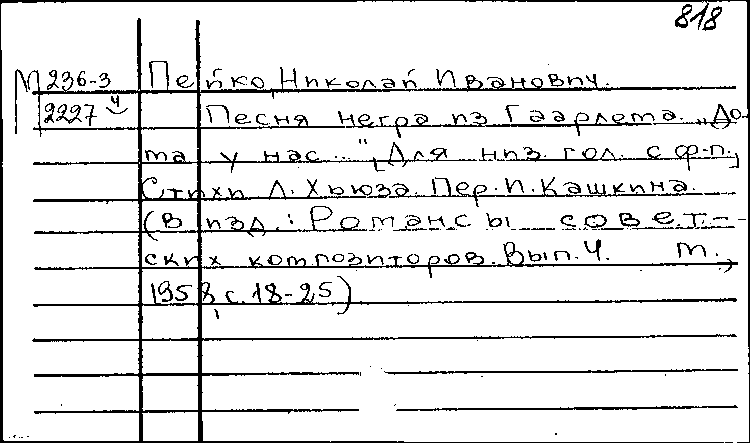 818
М 236-3 Пейко, Николай Иванович.
2227 ч Песня негра из Гаарлета. „До-
та у нас..." [Для низ. гол. с ф-п.,
Стихи Л. Хьюза. Пер. И. Кашкина.
(В изд.: Романсы совет-
ских композиторов. Вып. 4. М.,
1958, с. 18-25)